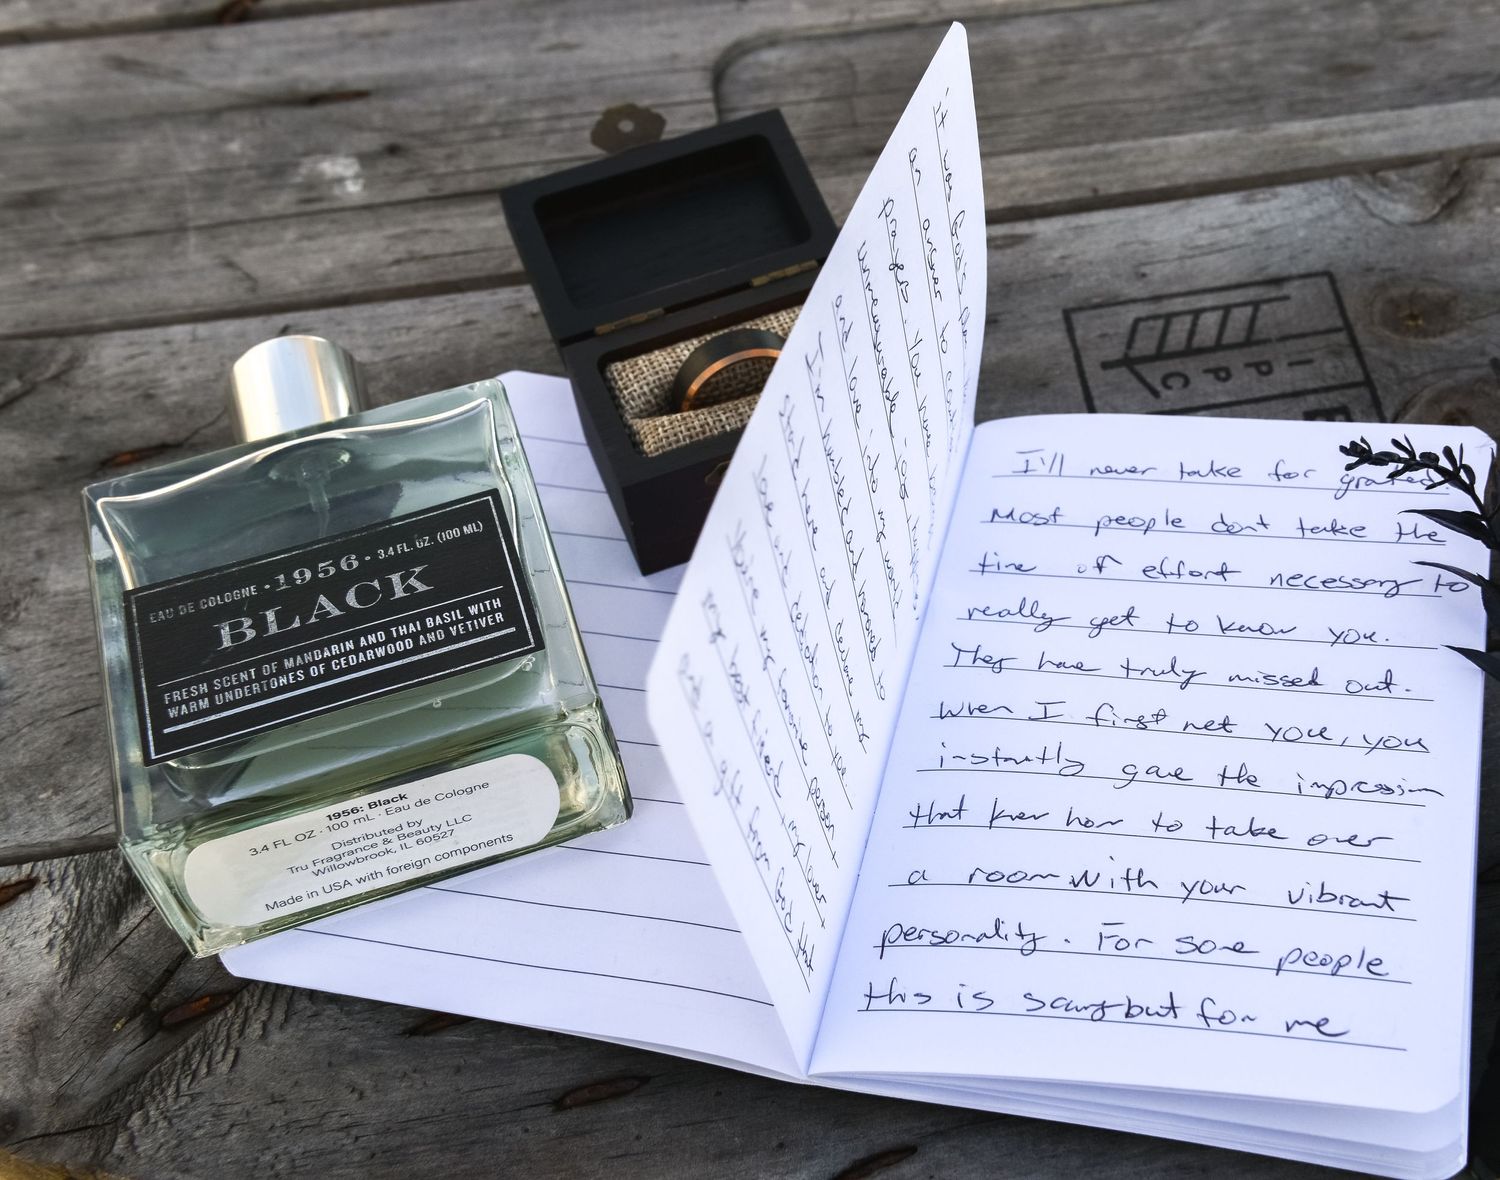 EAU DE COLOGNE • 1956 • 3.4 FL. OZ. (100 ML)
BLACK
FRESH SCENT OF MANDARIN AND THAI BASIL WITH
WARM UNDERTONES OF CEDARWOOD AND VETIVER
1956: Black
3.4 FL OZ · 100 mL · Eau de Cologne
Distributed by
Tru Fragrance & Beauty LLC
Willowbrook, IL 60527
Made in USA with foreign components
it was God's
an answer to
prayers. You have
unmeasurable joy
and love into my world
I'm humbled and honored to
stand here and declare my
love and devotion to you.
You're my favorite person
my best friend, my lover
and a gift from God that
I'll never take for granted.
Most people dont take the
time of effort necessary to
really get to know you.
They have truly missed out.
When I first met you, you
instantly gave the impression
that knew how to take over
a room with your vibrant
personality. For some people
this is scary but for me
IPPC